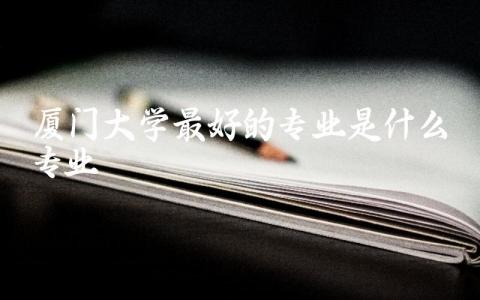 厦门大学最好的专业是什么
专业